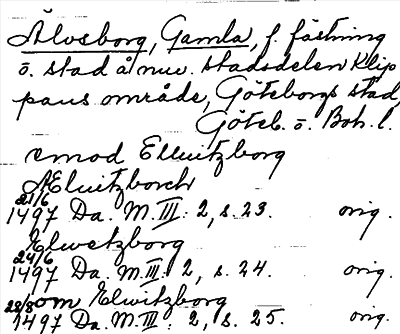 Älvsborg, Gamla, f. fästning
o. stad å nuv. stadsdelen Klip
pans område, Göteborgs stad,
Göteb. o. Boh. l.
emod Elluitzborg
AEluitzborch
21/6
1497 Da. M. III: 2, s. 23. orig.
Elwetzborg
24/6
1497 Da. M. III: 2, s. 24. orig.
om Elwitzborg
22/8
1497 Da. M. III: 2, s. 25. orig.